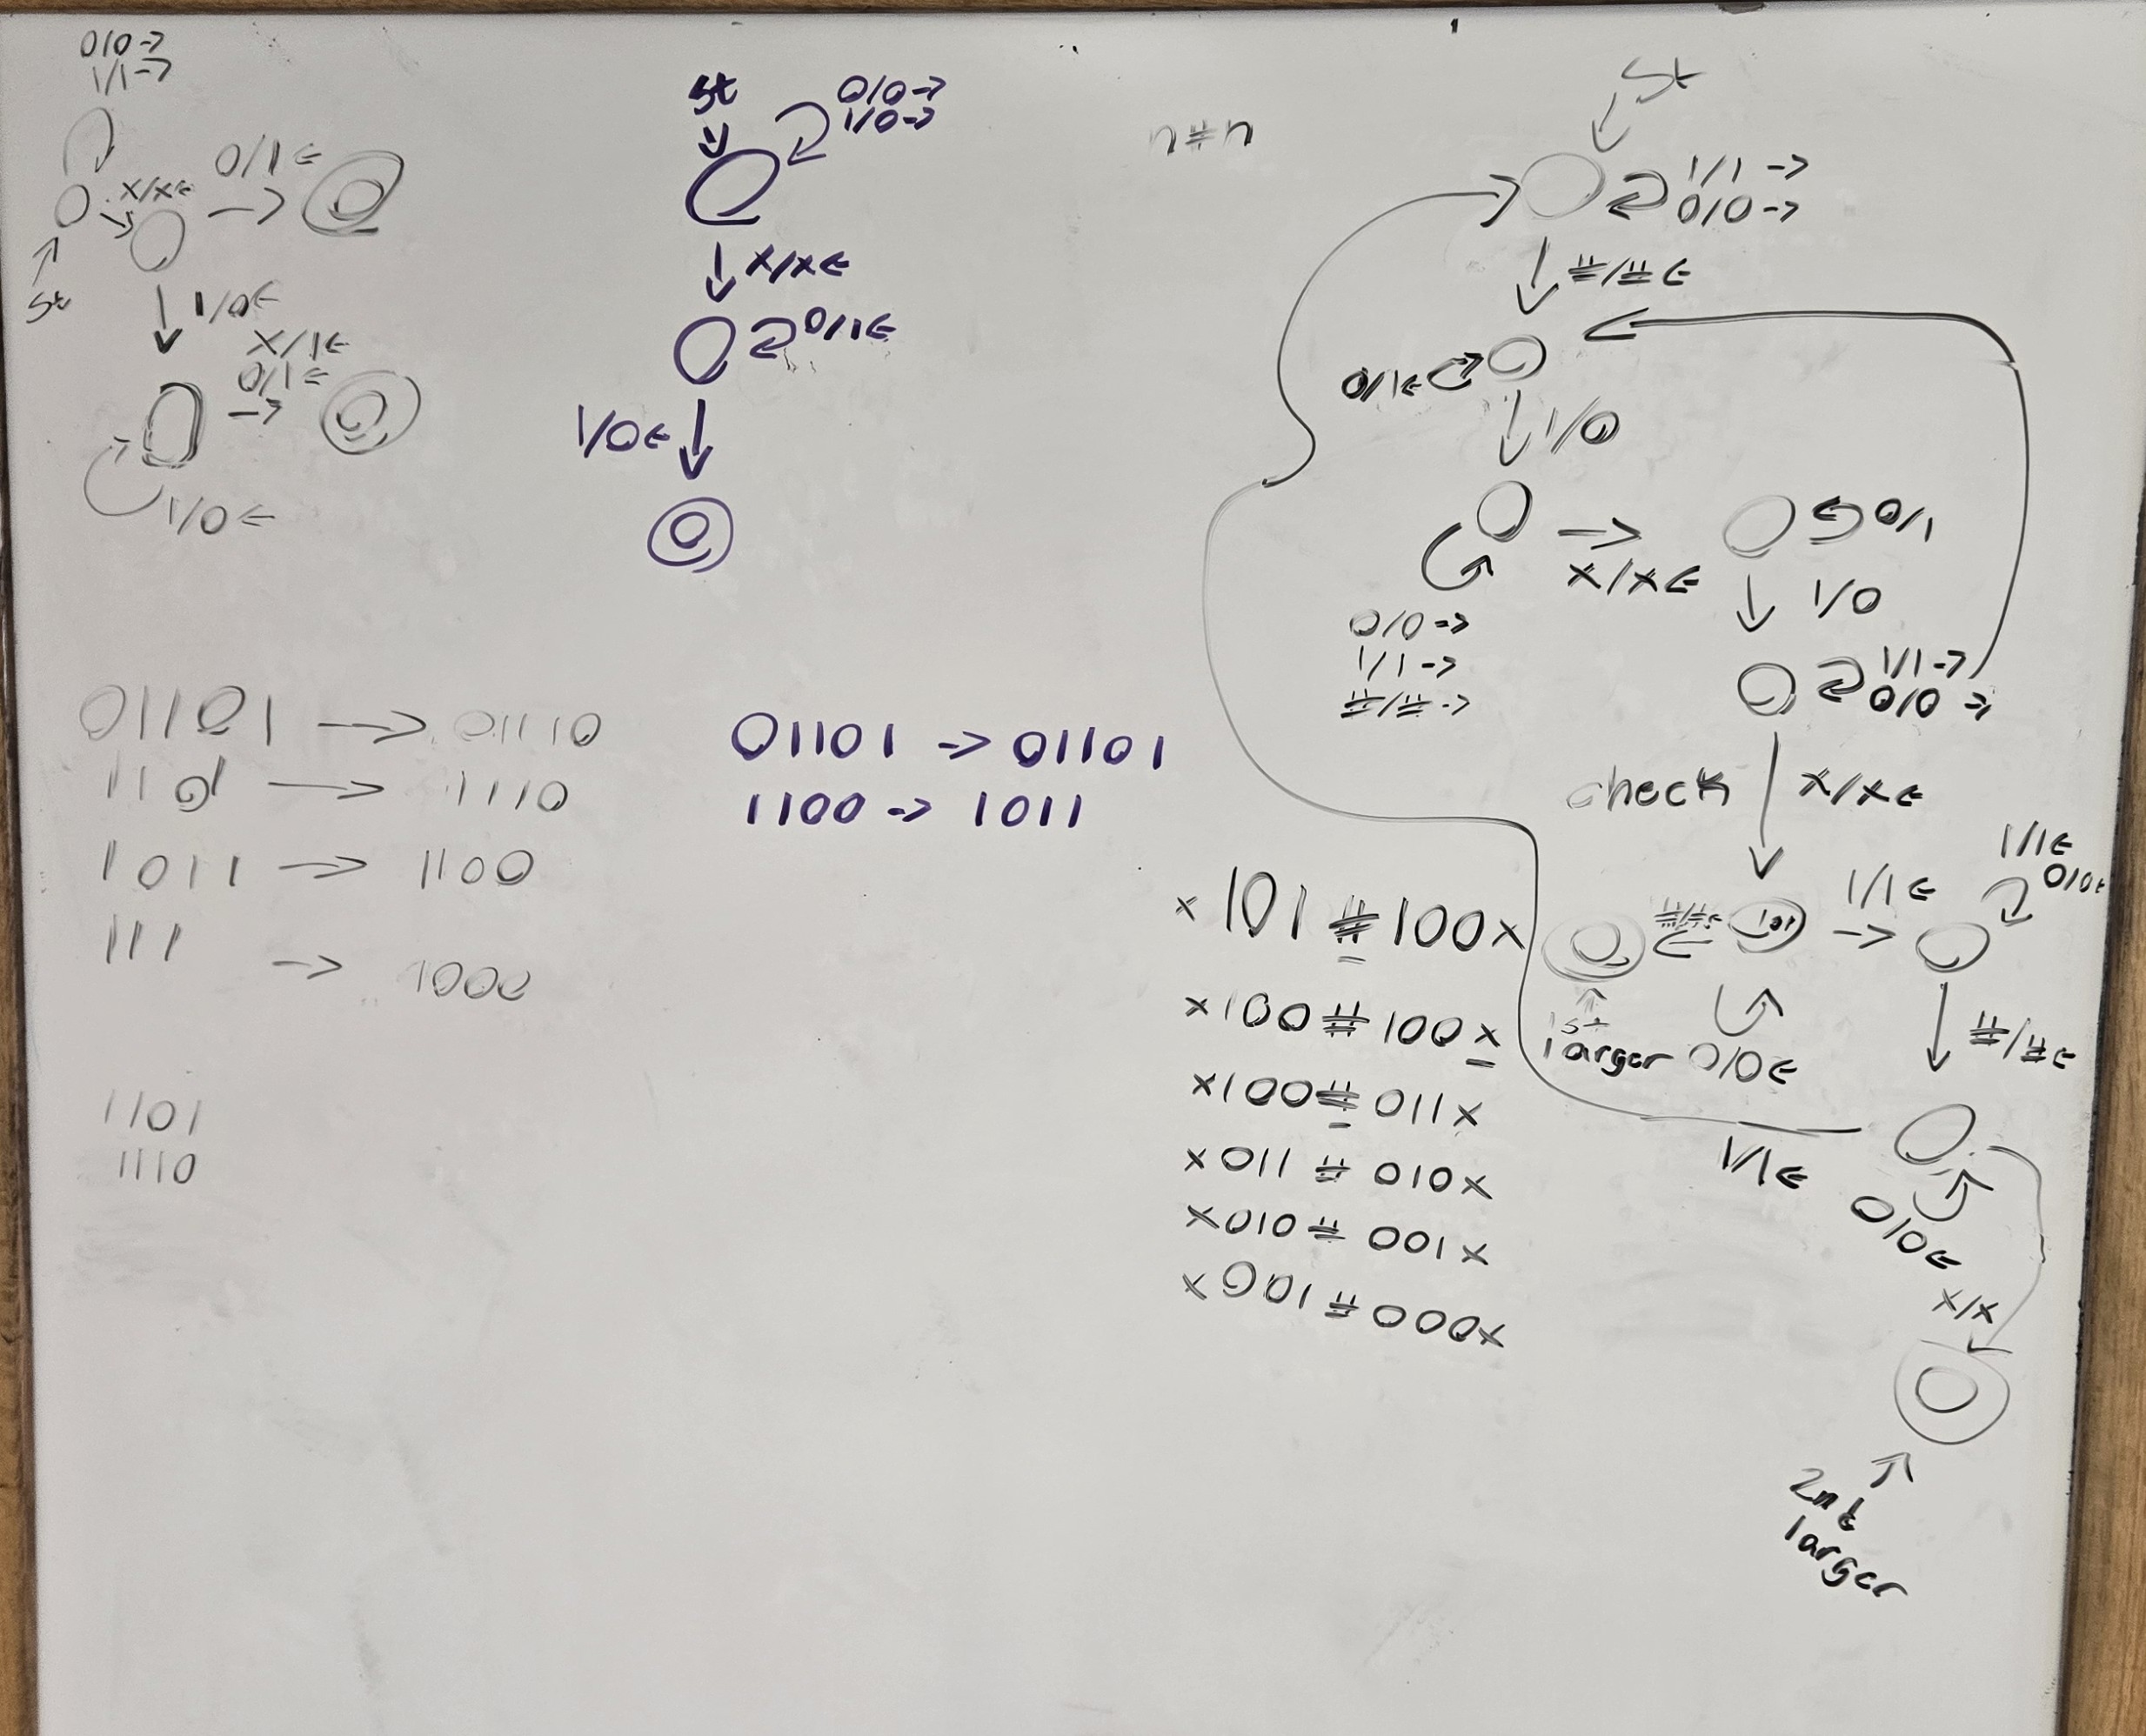 0/0→
1/1→
x/x←
0/1←
st
1/0←
x/1←
0/1←
1/0←
01101 → 01110
1101 → 1110
1011 → 1100
111 → 1000
1101
1110
st
0/0→
1/0→
x/x←
0/1←
1/0←
01101 → 01101
1100 → 1011
n#n
st
1/1→
0/0→
#/#←
0/1←
1/0
x/x←
0/0→
1/1→
#/#→
0/1
1/0
1/1→
0/0→
check
x/x←
#/#←
1/1←
1/1←
0/0←
1st
larger
0/0←
#/#←
1/1←
0/0←
x/x
2nd
larger
x101#100x
x100#100x
x100#011x
x011#010x
x010#001x
x001#000x